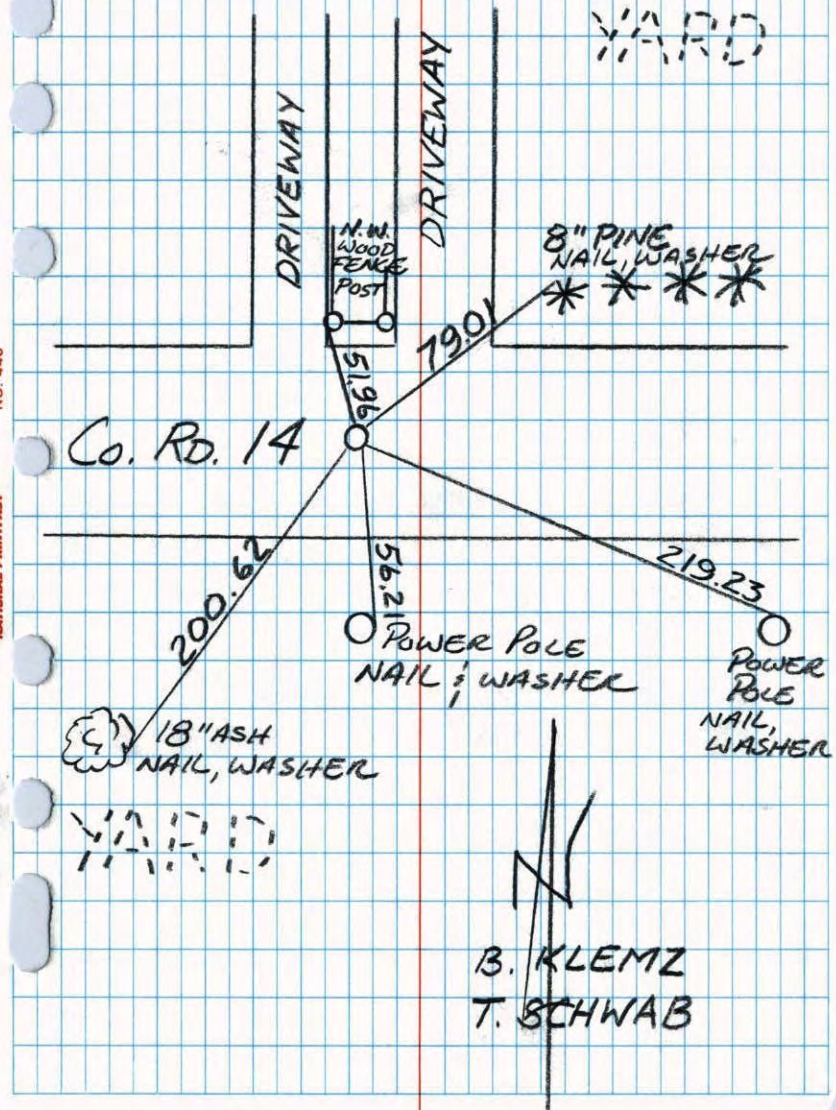 YARD
DRIVEWAY
DRIVEWAY
N.W.
WOOD
FENCE
POST
8" PINE
NAIL, WASHER
79.01
51.96
Co. RD. 14
200.62
56.21
219.23
POWER POLE
NAIL & WASHER
POWER
POLE
NAIL,
WASHER
18" ASH
NAIL, WASHER
YARD
N
B. KLEMZ
T. SCHWAB